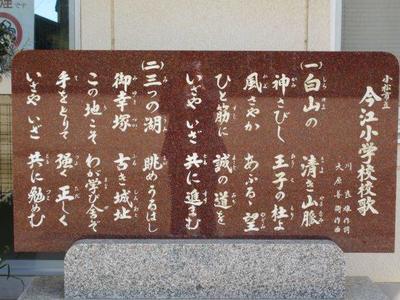 小松市立
今江小学校校歌
川 良雄作詞
大原善衛作曲
(一)白山の 清き山脈
神さびし 王子の杜よ
風さやか あふるゝ望
ひと筋に 誠の道を
いざや いざ 共に進まむ
(二)三つの湖 眺めうるはし
御幸塚 古き城址
この地こそ わが学び舎ぞ
手をとりて 強く 正しく
いざや いざ 共に勉めむ